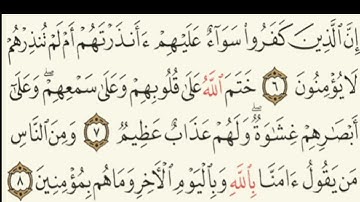 إِنَّ ٱلَّذِينَ كَفَرُوا۟ سَوَآءٌ عَلَيْهِمْ ءَأَنذَرْتَهُمْ أَمْ لَمْ تُنذِرْهُمْ
لَا يُؤْمِنُونَ ٦ خَتَمَ ٱللَّهُ عَلَىٰ قُلُوبِهِمْ وَعَلَىٰ سَمْعِهِمْ ۖ وَعَلَىٰٓ
أَبْصَٰرِهِمْ غِشَٰوَةٌ ۖ وَلَهُمْ عَذَابٌ عَظِيمٌ ٧ وَمِنَ ٱلنَّاسِ
مَن يَقُولُ ءَامَنَّا بِٱللَّهِ وَبِٱلْيَوْمِ ٱلْءَاخِرِ وَمَا هُم بِمُؤْمِنِينَ ٨